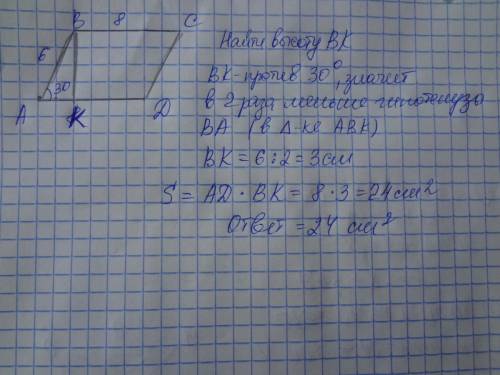 B 8 C
6
30
A K D
Найти высоту BK
BK - против 30°, значит
в 2 раза меньше гипотенузы
BA (в Δ-ке ABK)
BK = 6 : 2 = 3 см
S = AD · BK = 8 · 3 = 24 см²
Ответ = 24 см²